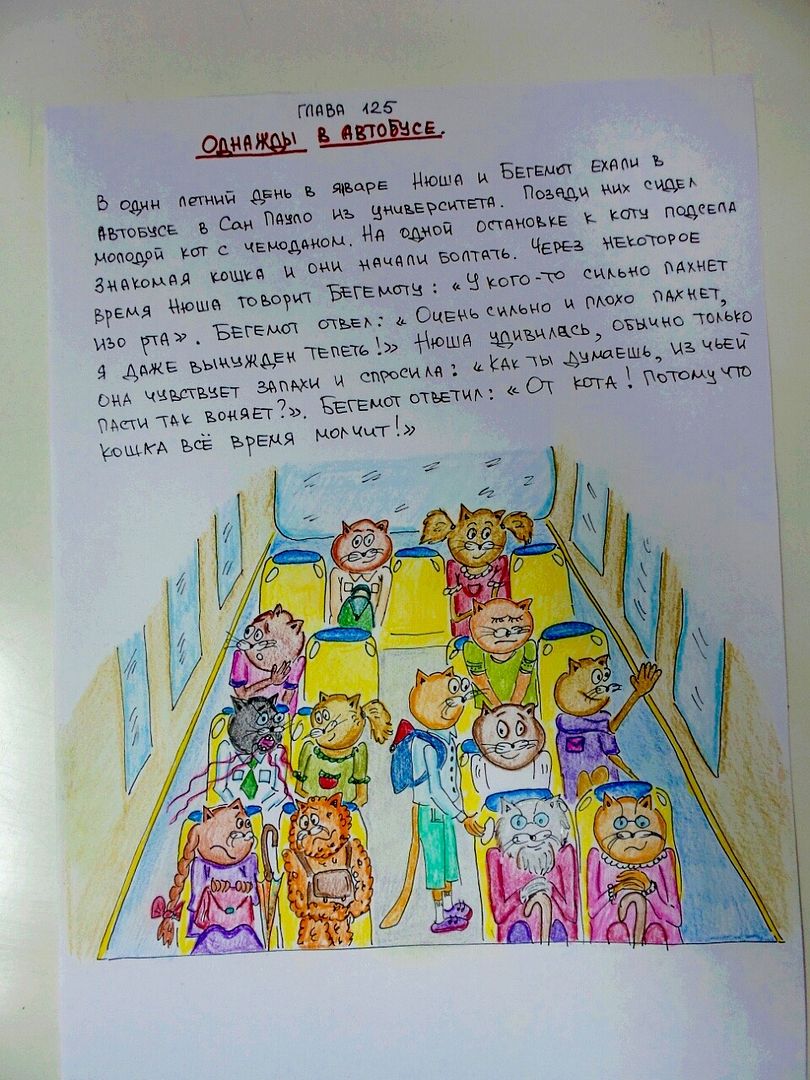 ГЛАВА 125
ОДНАЖДЫ В АВТОБУСЕ.
В ОДИН ЛЕТНИЙ ДЕНЬ В ЯВАРЕ НЮША И БЕГЕМОТ ЕХАЛИ В
АВТОБУСЕ В САН ПАУЛО ИЗ УНИВЕРСИТЕТА. ПОЗАДИ НИХ СИДЕЛ
МОЛОДОЙ КОТ С ЧЕМОДАНОМ. НА ОДНОЙ ОСТАНОВКЕ К КОТУ ПОДСЕЛА
ЗНАКОМАЯ КОШКА И ОНИ НАЧАЛИ БОЛТАТЬ. ЧЕРЕЗ НЕКОТОРОЕ
ВРЕМЯ НЮША ГОВОРИТ БЕГЕМОТУ: «У КОГО-ТО СИЛЬНО ПАХНЕТ
ИЗО РТА». БЕГЕМОТ ОТВЕЛ: «ОЧЕНЬ СИЛЬНО И ПЛОХО ПАХНЕТ,
Я ДАЖЕ ВЫНУЖДЕН ТЕПЕТЬ!» НЮША УДИВИЛАСЬ, ОБЫЧНО ТОЛЬКО
ОНА ЧУВСТВУЕТ ЗАПАХИ И СПРОСИЛА: «КАК ТЫ ДУМАЕШЬ, ИЗ ЧЬЕЙ
ПАСТИ ТАК ВОНЯЕТ?». БЕГЕМОТ ОТВЕТИЛ: «ОТ КОТА! ПОТОМУ ЧТО
КОШКА ВСЁ ВРЕМЯ МОЛЧИТ!»